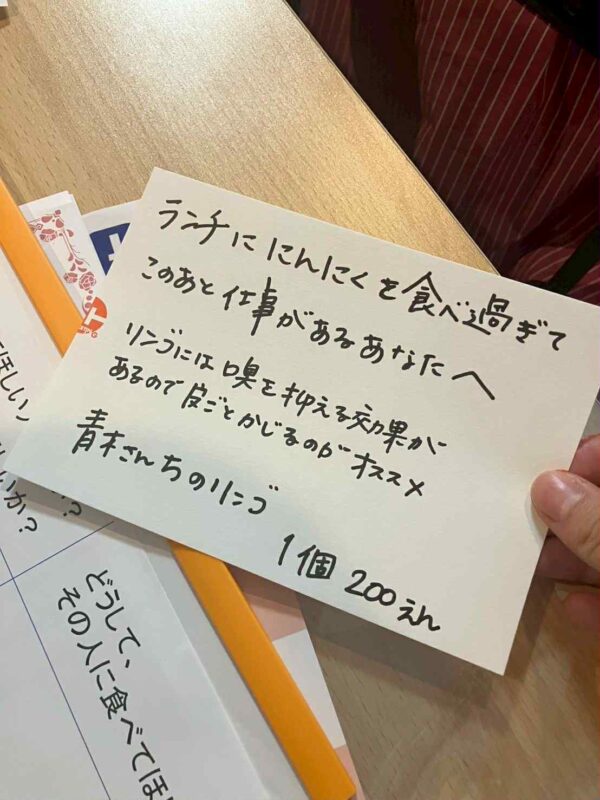 ランチに にんにくを食べ過ぎて
このあと仕事があるあなたへ
リンゴには臭を抑える効果が
あるので皮ごとかじるのがオススメ
青木さんちのリンゴ
1個 200えん
てほしい
いか?
?
どうして、
その人に食べてほ